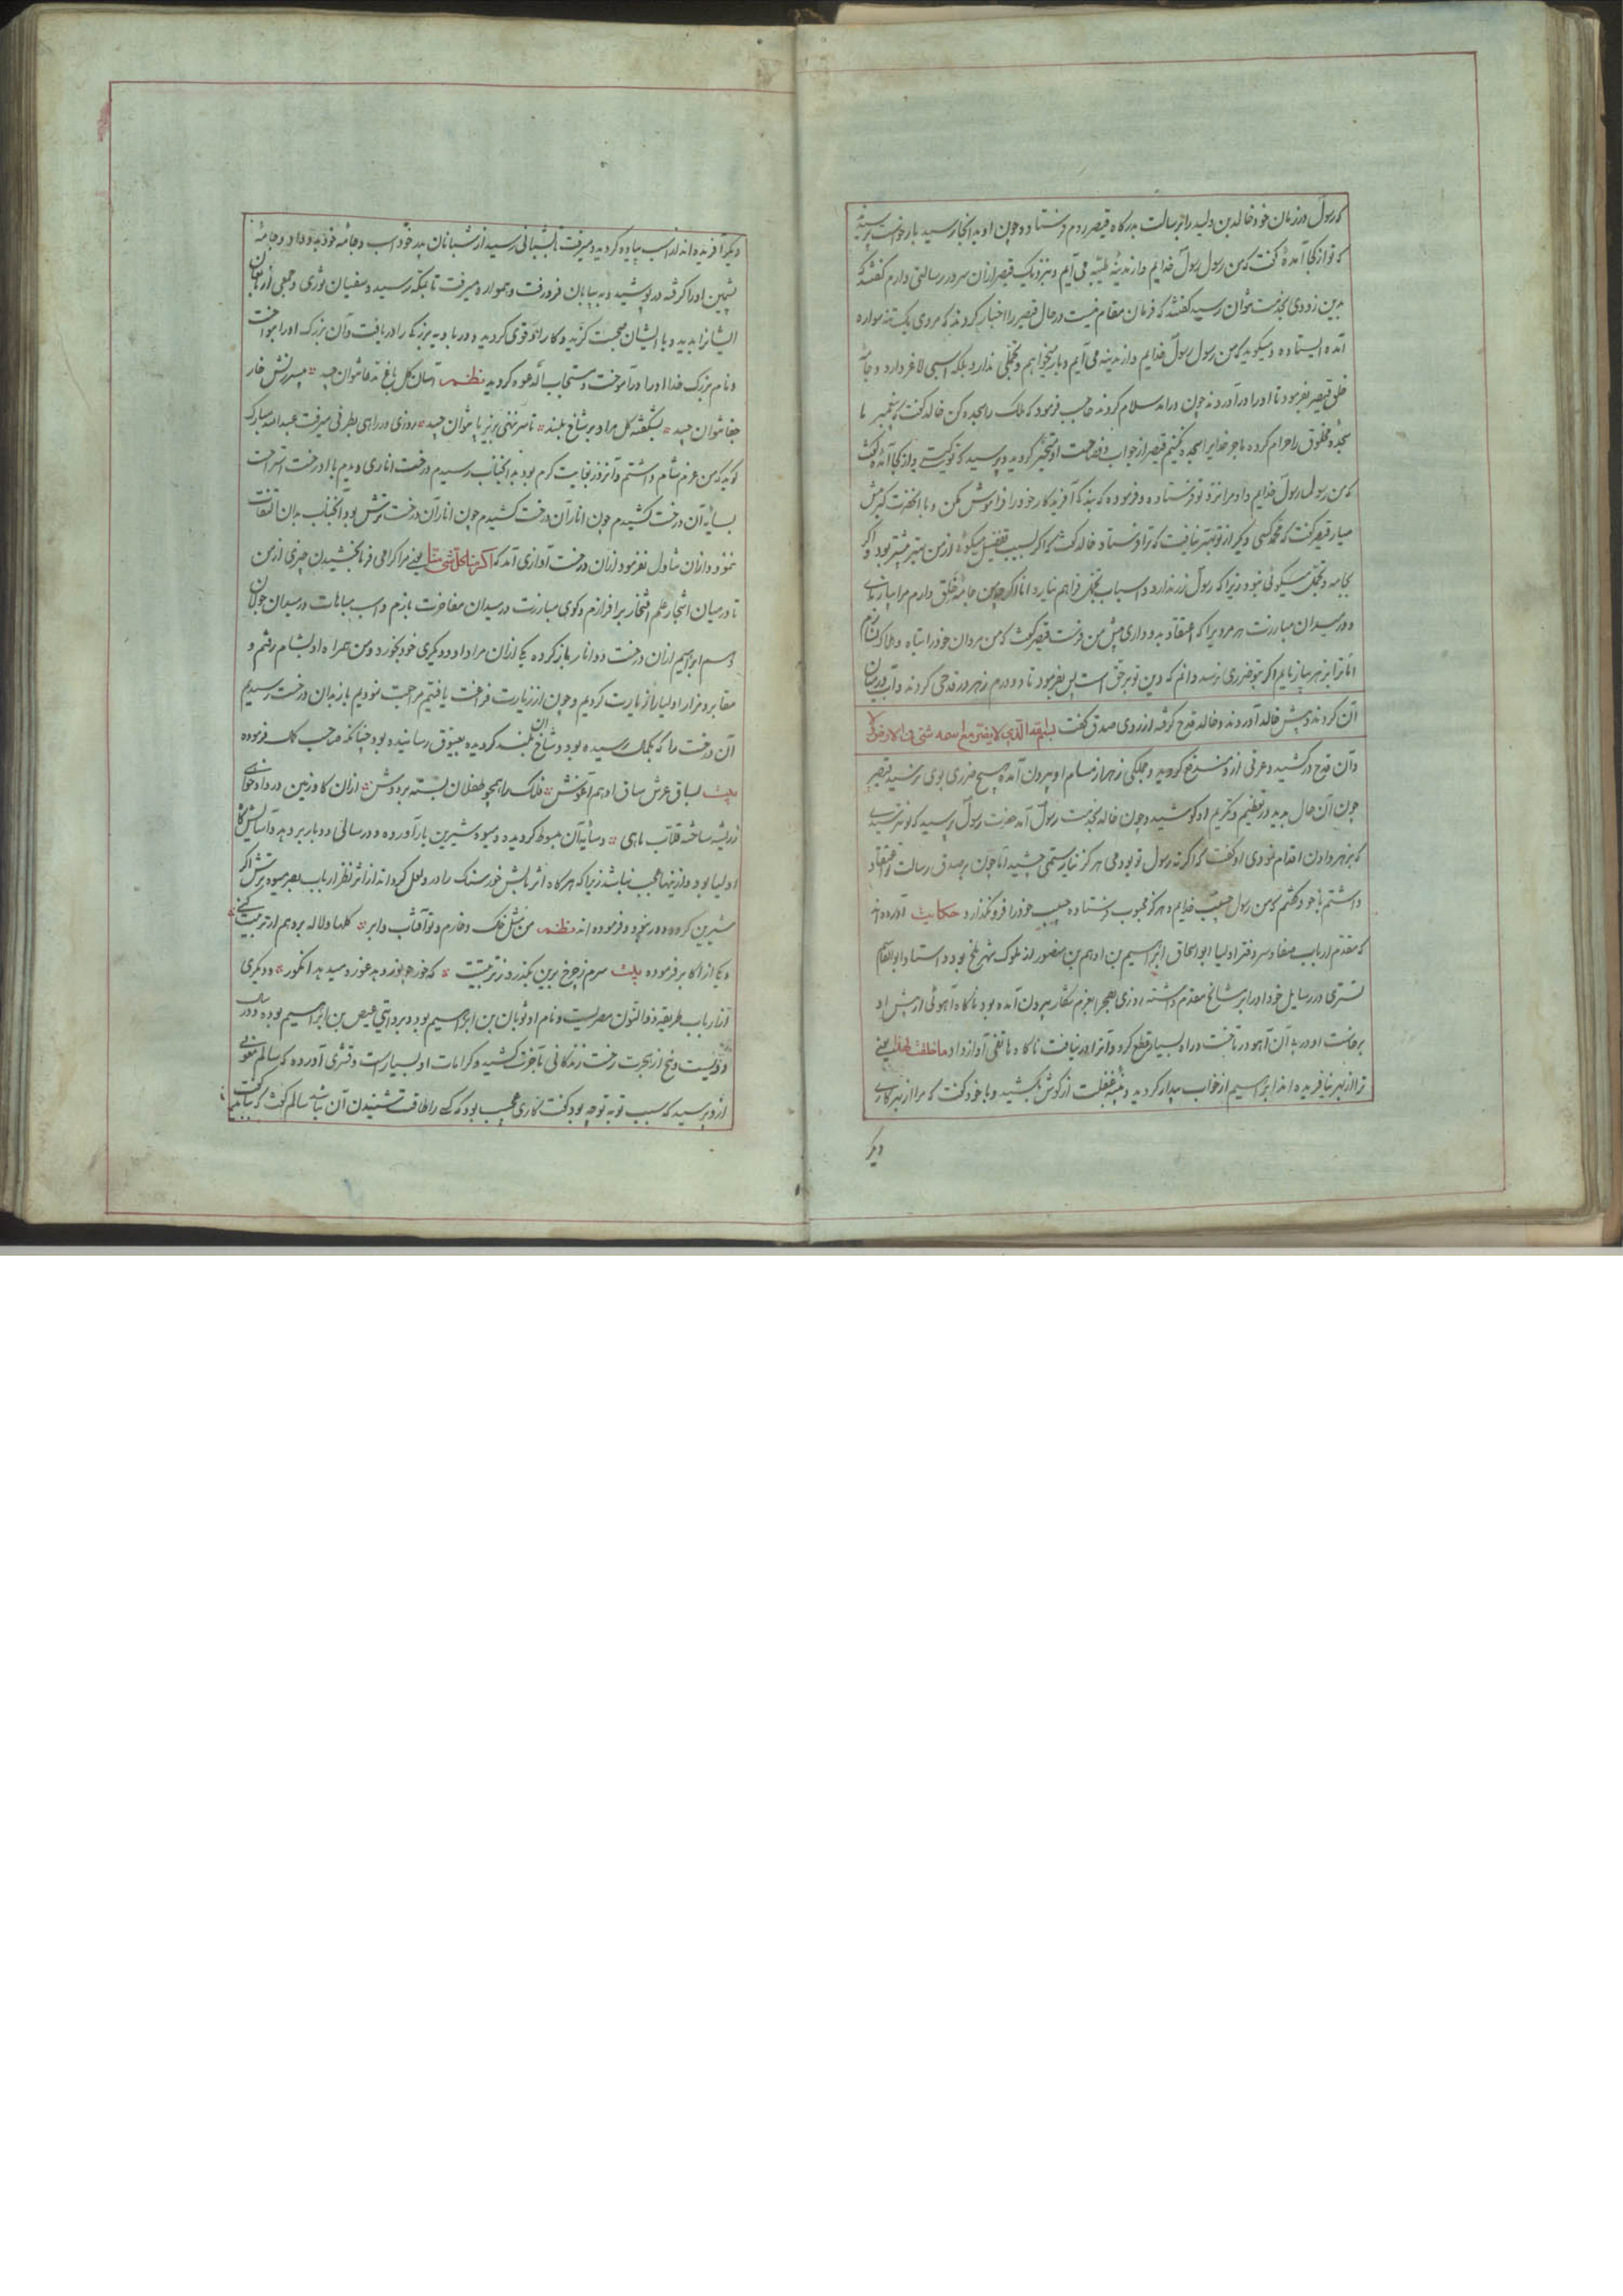 که رسول در زمان خود خالد بن ولید را برسالت بدرگاه قیصر روم فرستاد و چون او بدانجا رسید بار خواست پرسیدند
که تو از کجا آمدهٔ گفت که من رسول رسول خدایم و از مدینهٔ طیبه می آیم و بنزدیک قیصر ازان سرور رسالتی دارم گفتند که
بدین زودی بخدمت نتوان رسید گفتند که فرمان مقام نیست در حال قیصر را اخبار کردند که مردی یک تنه سواره
آمده ایستاده و میگوید که من رسول رسول خدایم و از مدینه می آیم و بار میخواهم و تجملی ندارد بلکه اسپی لاغر دارد و جامه
خلق قیصر بفرمود تا او را درآوردند چون درآمد سلام کرد حاجب فرمود که ملک را سجده کن خالد گفت که پیغمبر ما
سجدهٔ مخلوق را حرام کرده ما جز خدایرا سجده نکنیم قیصر از جواب و فصاحت او متحیر گردید و پرسید که تو کیستی و از کجا آمدهٔ گفت
که من رسول رسول خدایم و او مرا نزد تو فرستاده و فرموده که بنده که آفریدگار خود را فراموش مکن و با آنحضرت کبر پیش
میار قیصر گفت که محمد کسی دیگر از تو بهتر نیافت که ترا فرستاد خالد گفت که اگر بسبب تفضیل میگوئی از من بهتر بیشتر بود و اگر
بجامه و تجمل میگوئی نبود زیرا که رسول زر ندارد و اسباب تجمل فراهم نیارد اما اگر چه من جامهٔ خلق دارم مرا بیازمای
و در میدان مبارزت هر مرد یرا که اعتقاد بدو داری پیش من فرست قیصر گفت که من مردان خود را تباه و هلاک نسازم
اما ترا بزهر بیازمایم اگر بتو ضرری نرسد دانم که دین تو بر حق است پس بفرمود تا دو درم زهر در قدحی کردند و آب در میان
آن کردند و پیش خالد آوردند و خالد قدح گرفته از روی صدق گفت بسم الله الذی لا یضر مع اسمه شئ فی الارض ولا
و آن قدح درکشید و عرقی ازو منشرح گردید و جملگی زهر از مسام او بیرون آمده هیچ ضرری بوی نرسید قیصر
چون آن حال بدید در تعظیم و تکریم او کوشید و چون خالد بخدمت رسول آمد حضرت رسول پرسید که تو نترسیدی
که بزهر دادن اقدام نمودی او گفت که اگر نه رسول تو بودمی هرگز نیارستمی چشید اما چون بر صدق رسالت تو اعتقاد
داشتم با خود گفتم که من رسول حبیب خدایم و هرگز محبوب فرستاده حبیب خود را فرو نگذارد حکایت آورده اند
که مقدم ارباب صفا و سر دفتر اولیا ابو اسحاق ابراهیم بن ادهم بن منصور از ملوک شهر بلخ بود و استاد ابو القاسم
قشیری در رسایل خود او را بر مشایخ مقدم داشته روزی بصحرا بعزم شکار بیرون آمده بود ناگاه آهوئی از پیش او
برخاست او در پی آن آهو در تاخت و راه بسیار قطع کرد و آنرا در نیافت ناگاه هاتفی آواز داد ما خلقت لهذا یعنی
ترا از بهر این نیافریده اند ابراهیم از خواب بیدار گردید و پنبهٔ غفلت از گوش کشید و با خود گفت که مرا از بهر کاری
دیگر
دیگر آفریده اند از اسب پیاده گردید و میرفت تا بشبانی رسید از شبانان پدر خود اسب و جامهٔ خود بدو داد و جامهٔ
پشمین او را گرفته در پوشید و به بیابان فرو رفت و هموار میرفت تا بمکه رسید و سفیان ثوری و جمعی از
ایشانرا بدید و با ایشان صحبت گزید و کار او قوی گردید و در بادیه بزرگی را دریافت و آن بزرگ او را بنواخت
و نام بزرگ خدا او را درآموخت و مستجاب الدعوه گردید نظم آسان گل باغ مدعا نتوان چید بی سرزنش خار
جفا نتوان چید بشکفته گل مراد بر شاخ بلند تا سر ننهی بزیر پا نتوان چید روزی در راهی بطرفی میرفت عبدالله مبارک
گوید که من عزم شام داشتم و آنروز بغایت گرم بود با آنجناب رسیدم درخت اناری دیدم با او رخت استراحت
بسایه آن درخت کشیدم چون انار آن درخت کشیدم چون انار آن درخت ترش بود آنجناب بدان التفات
ننمود و ازان تناول نفرمود ازان درخت آوازی آمد که اکرمنا کل شئ منا یعنی مرا گرامی فرما بچشیدن چیزی از من
تا در میان اشجار علم افتخار برافرازم و گوی مبارزت در میدان مفاخرت بازم و اسب مباهات در میدان جولان
دهم ابراهیم ازان درخت دو انار باز کرده یکی ازان مرا داد و دیگری خود بخورد و من همراه او بشام رفتم و
مقابر و مزار اولیا را زیارت کردیم و چون از زیارت فراغت یافتیم مراجعت نمودیم باز بدان درخت رسیدیم
آن درخت را که بکمال رسیده بود و شاخ آن بلند گردیده بعیوق رسانیده بود چنانکه صاحب کمال فرموده
بیت بساق عرش ساق او هم آغوش فلک را همچو طفلان بسته بر دوش ازان گاو زمین در داد خواهی
ز ریشه ساخته قلاب ماهی و سایه آن مبسوط گردیده و میوه شیرین بار آورده و در سالی دو بار بر دهد و آسایش گاه
اولیا بود و از اینها عجب نباشد زیرا که هر گاه اثر تابش خور سنگ را در و لعل گرداند از اثر نظر ارباب بصر میوه ترش اگر
شیرین گردد دور نبود و فرموده اند نظم من مثل خاک و خارم و تو آفتاب و ابر گلها و لاله بر دهم ار تربیت کنی
و یکی از اکابر فرموده بیت سرم ز چرخ برین بگذرد ز تربیتت که خور چو نور دهد غوره میدهد انگور و دیگری
از ارباب طریقه ذو النون مصریست و نام او ثوبان بن ابراهیم بود و بروایتی فیض بن ابراهیم بوده و در سال
دویست و پنج از هجرت رخت زندگانی بآخرت کشید و کرامات او بسیار است و قشیری آورده که سالم مغربی
ازو پرسید که سبب توبه تو چه بود گفت کاری عجیب بود که کسی را طاقت شنیدن آن نباشد سالم گفت که